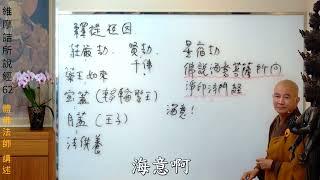 維摩詰所說經62 體佛法師 講述
釋從因
莊嚴劫、賢劫 星宿劫
千佛
藥王如來 佛說海意菩薩所問
寶蓋(轉輪聖王) 淨印法門經
月蓋(王子) 海意
法供養
海意啊